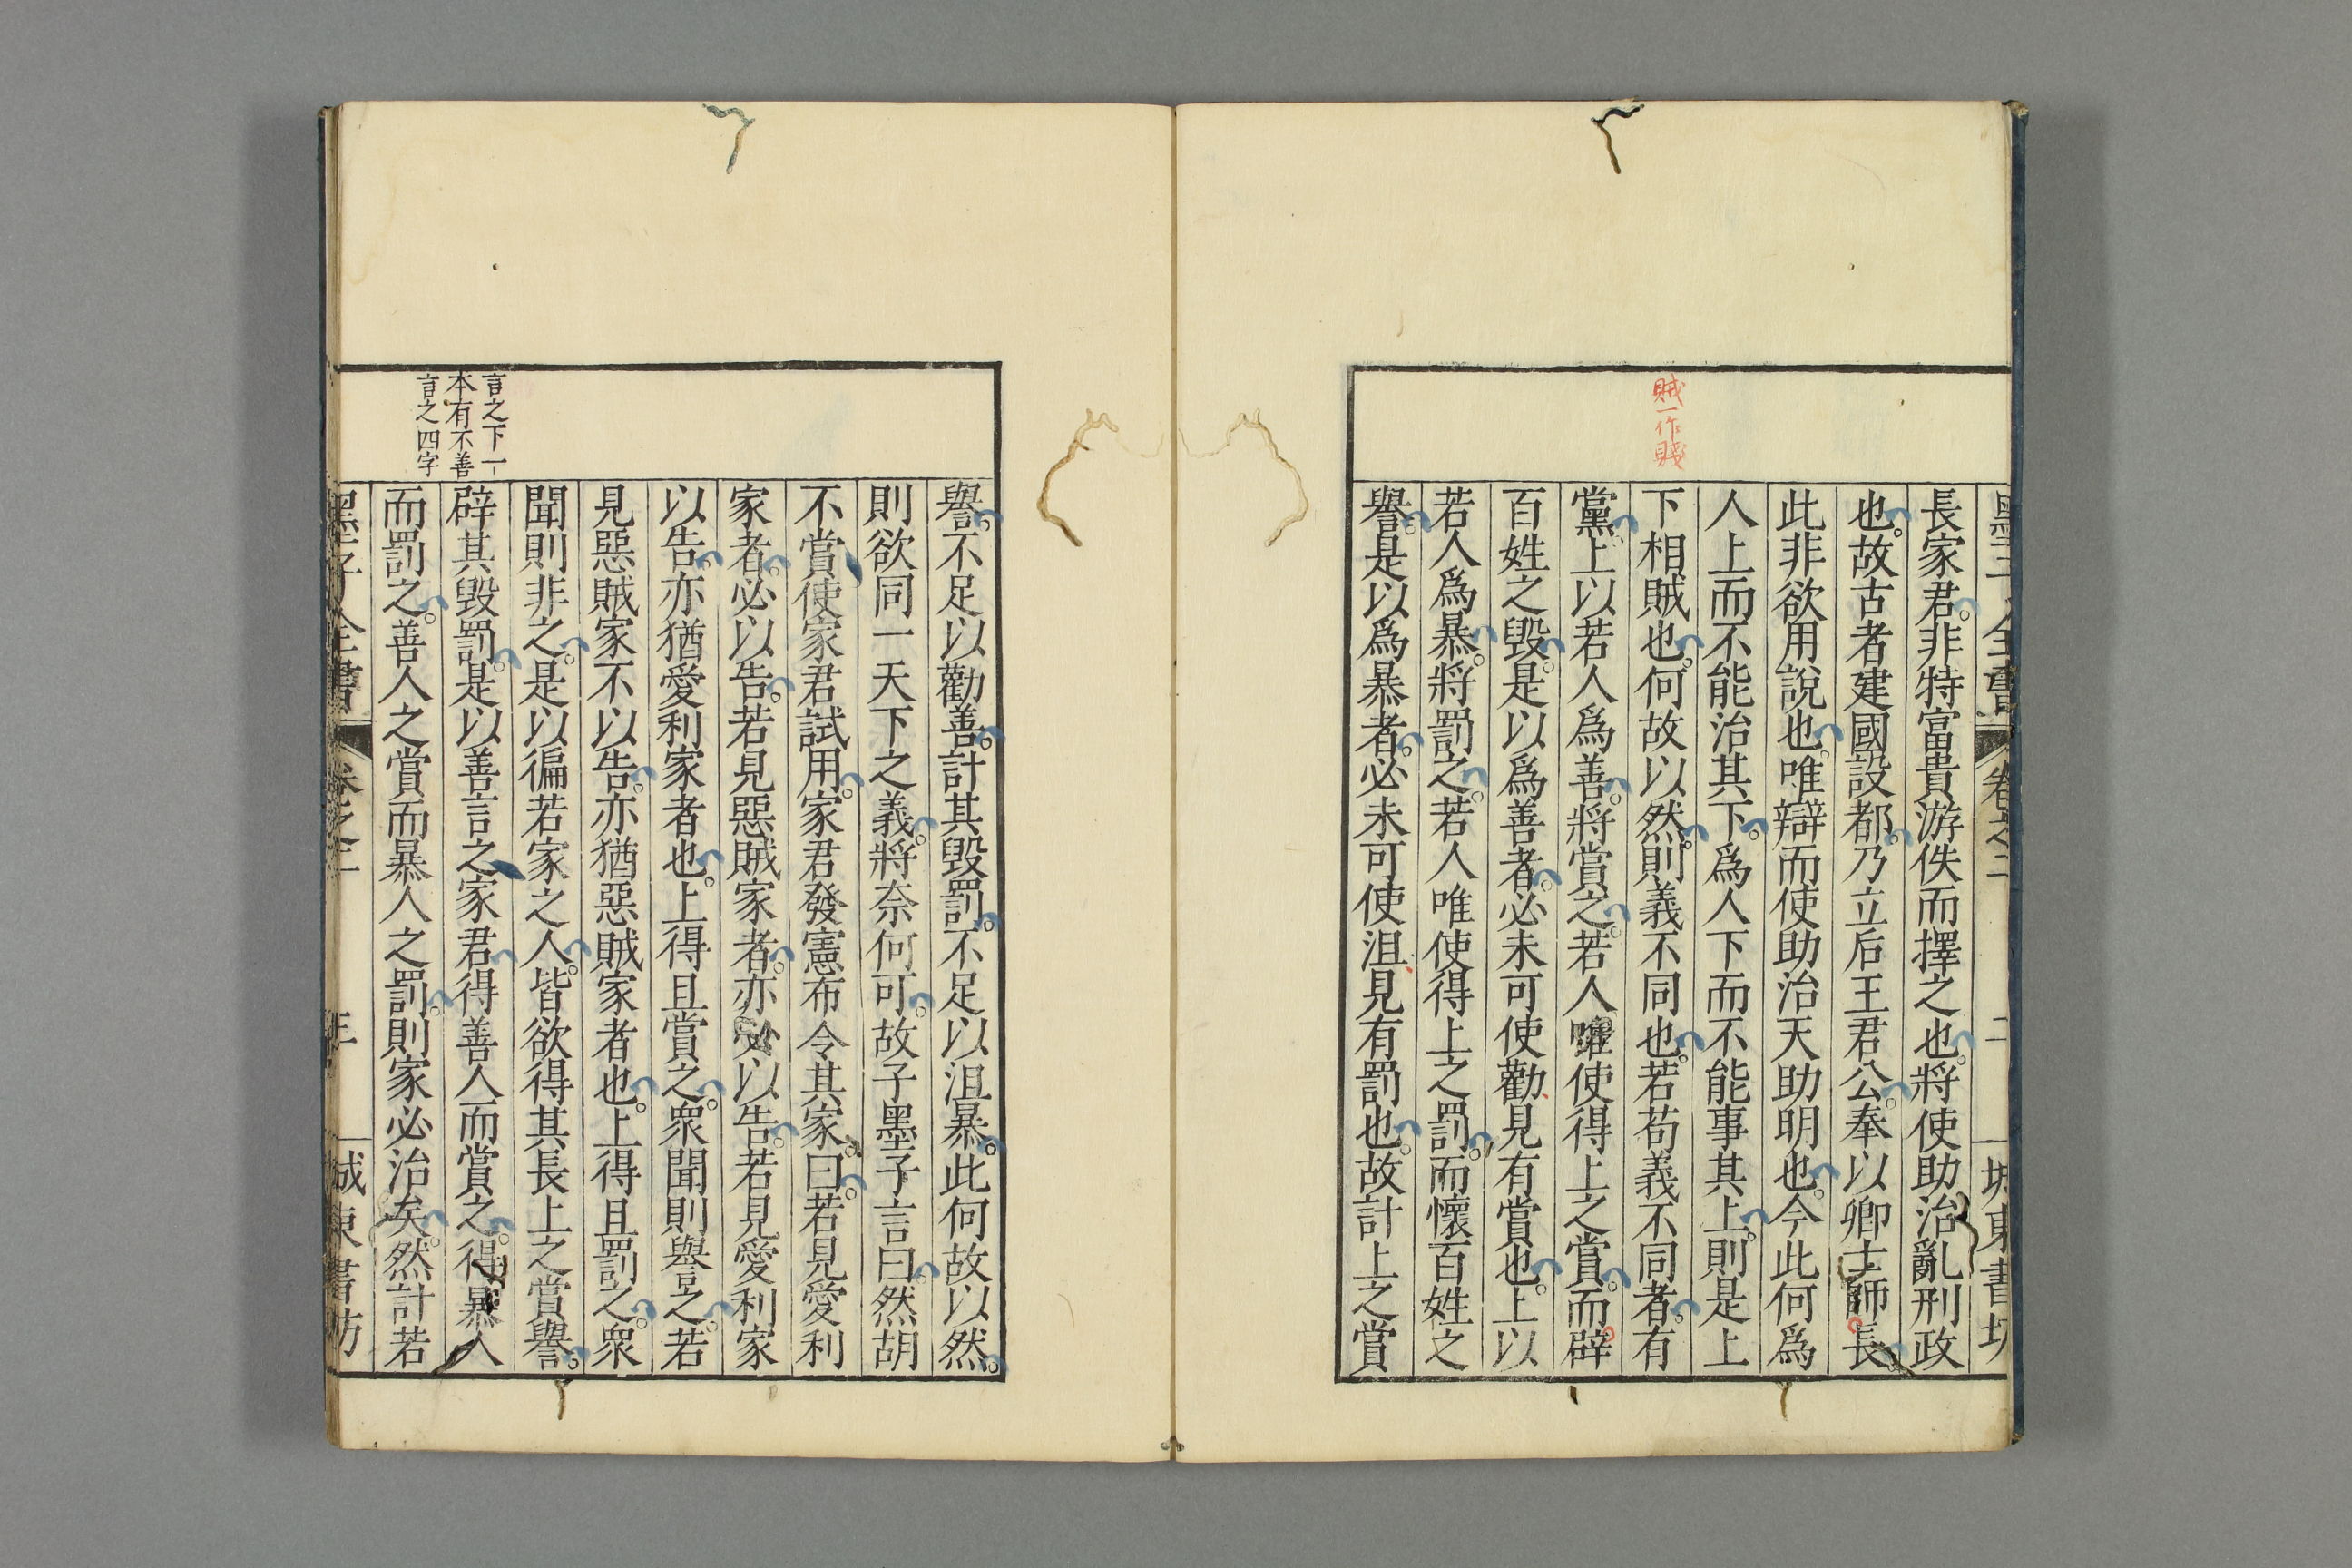 賊一作賤
長家君。非特富貴游佚而擇之也。將使助治亂刑政
也。故古者建國設都。乃立后王君公。奉以卿士師長。
此非欲用說也。唯辯而使助治天助明也。今此何爲
人上而不能治其下。爲人下而不能事其上。則是上
下相賊也。何故以然。則義不同也。若苟義不同者。有
黨。上以若人爲善。將賞之。若人唯使得上之賞。而辟
百姓之毀。是以爲善者。必未可使勸見有賞也。上以
若人爲暴。將罰之。若人唯使得上之罰。而懷百姓之
譽。是以爲暴者。必未可使沮見有罰也。故計上之賞
言之下一
本有不善
言之四字
譽。不足以勸善。計其毀罰。不足以沮暴。此何故以然。
則欲同一天下之義。將奈何可。故子墨子言曰。然胡
不賞使家君試用。家君發憲布令其家。曰。若見愛利
家者。必以告。若見惡賊家者。亦必以告。若見愛利家
以告。亦猶愛利家者也。上得且賞之。衆聞則譽之。若
見惡賊家不以告。亦猶惡賊家者也。上得且罰之。衆
聞則非之。是以徧若家之人。皆欲得其長上之賞譽。
辟其毀罰。是以善言之家君。得善人而賞之。得暴人
而罰之。善人之賞而暴人之罰。則家必治矣。然計若